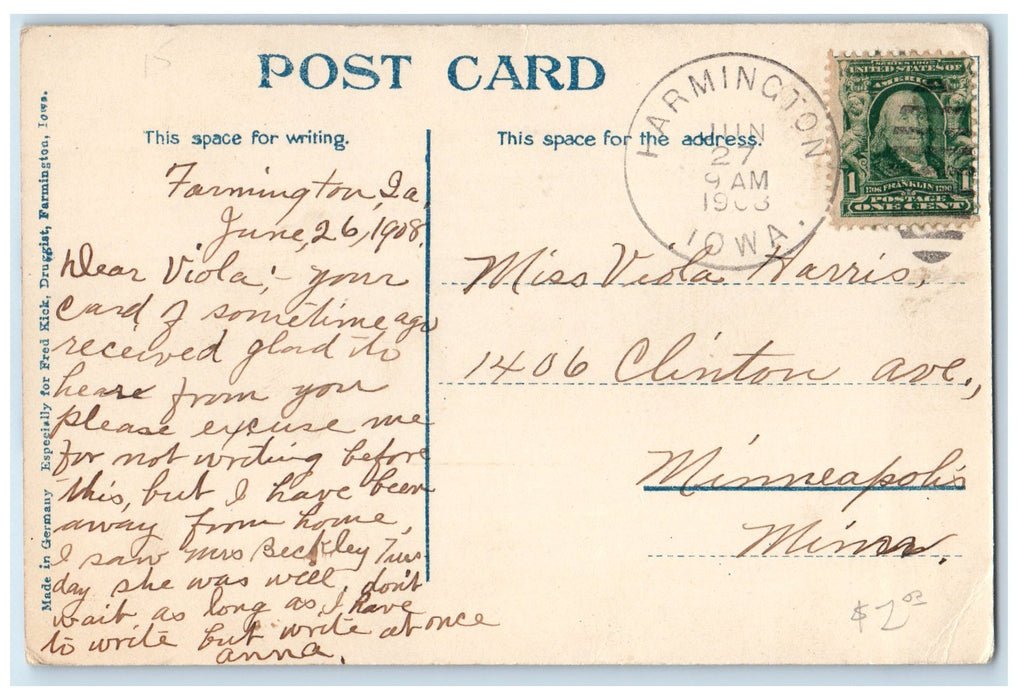 POST CARD
This space for writing.
This space for the address.
Farmington, Ia,
June, 26, 1908.
Dear Viola;- your
card of sometime ago
received glad to
heare from you
please excuse me
for not writing before
this, but I have been
away from home,
I saw Mrs Beckley Tues-
day she was well, don't
wait as long as I have
to write but write at once
anna.
Miss Viola Harris,
1406 Clinton ave.,
Minneapolis
Minn.
FARMINGTON
JUN
27
9 AM
1908
IOWA.
SERIES 1902
UNITED STATES OF
AMERICA
1 1706 FRANKLIN 1790 1
POSTAGE
ONE CENT
Made in Germany Especially for Fred Kick, Druggist, Farmington, Iowa.
15